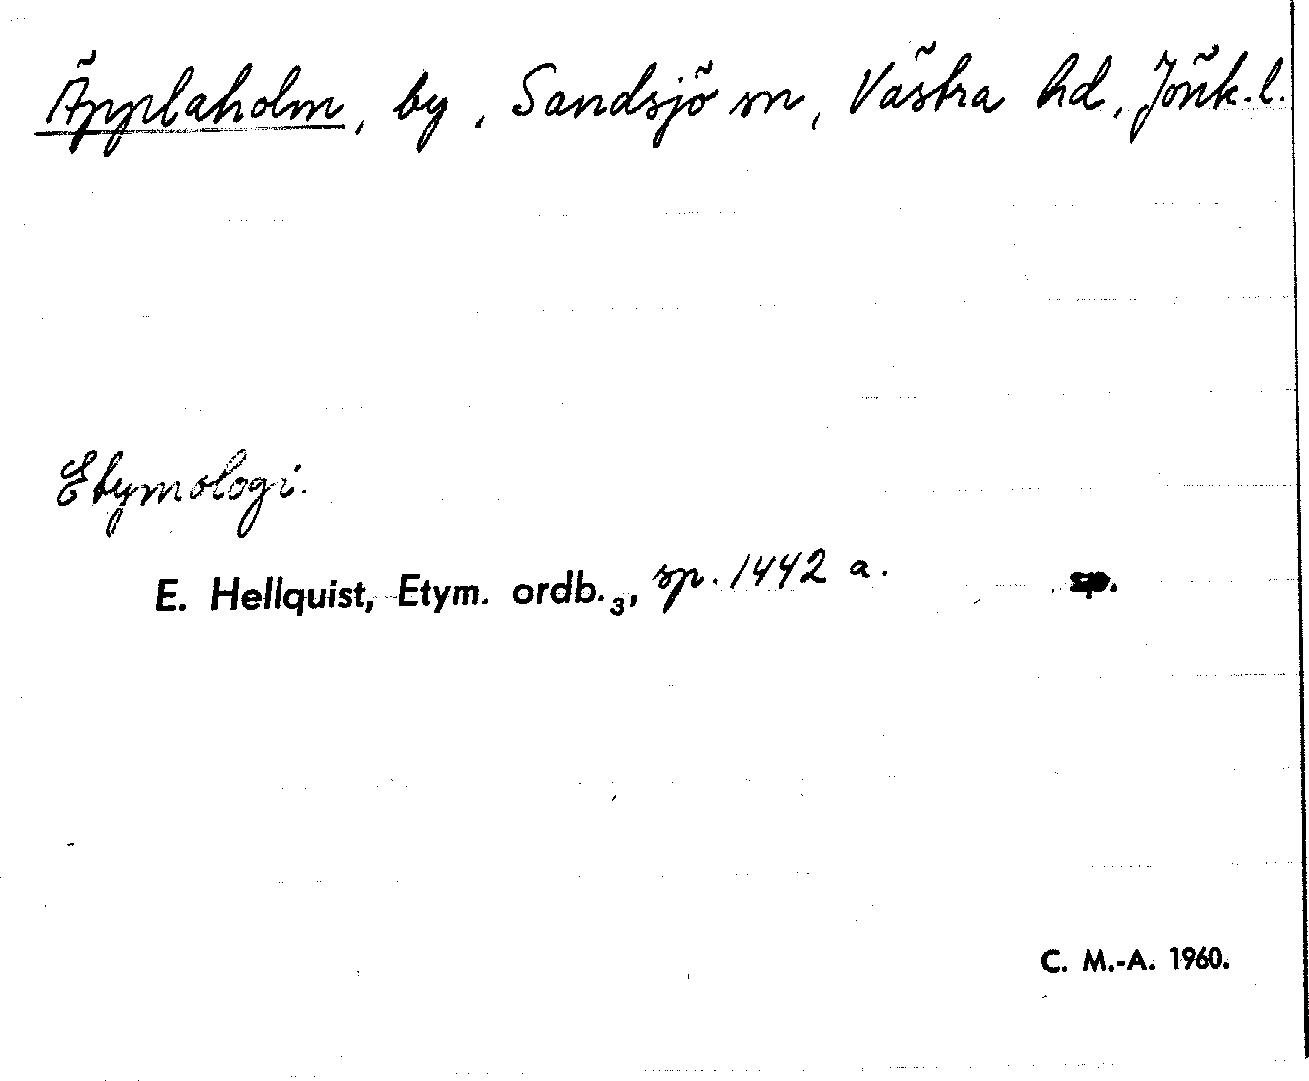 Äpplaholm, by, Sandsjö sn, Västra hd, Jönk. l.
Etymologi.
E. Hellquist, Etym. ordb.₃, sp. 1442 a. sp.
C. M.-A. 1960.